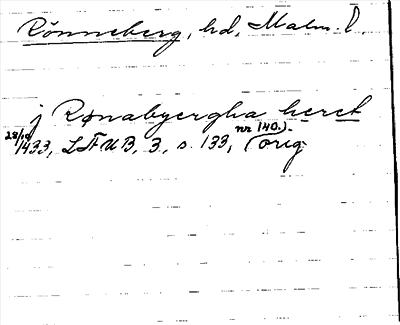 Rönneberg, hd, Malm. l
j Rønabyergha heret
28/10 1433, LÄUB, 3, s. 133, nr 140.). (orig